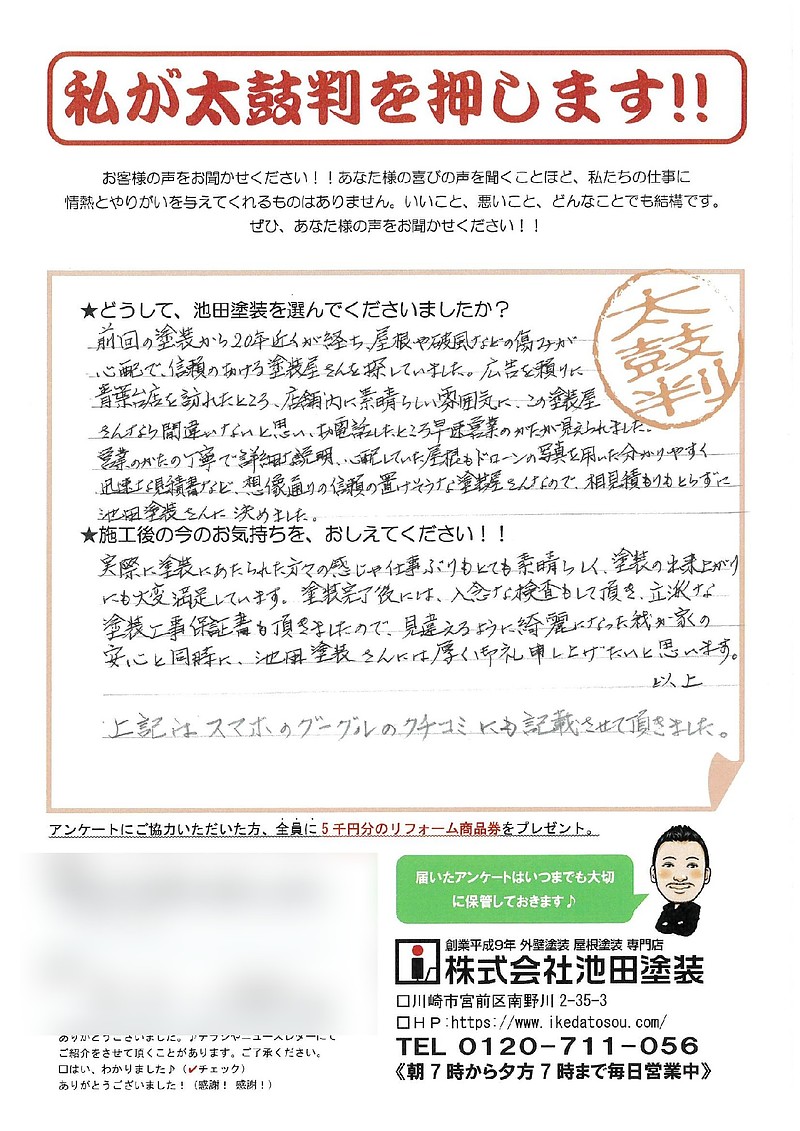 私が太鼓判を押します!!
お客様の声をお聞かせください！！あなた様の喜びの声を聞くことほど、私たちの仕事に
情熱とやりがいを与えてくれるものはありません。いいこと、悪いこと、どんなことでも結構です。
ぜひ、あなた様の声をお聞かせください！！
太鼓判
★どうして、池田塗装を選んでくださいましたか？
前回の塗装から20年近くが経ち、屋根や破風などの傷みが
心配で、信頼のおける塗装屋さんを探していました。広告を頼りに
青葉台店を訪れたところ、店舗内に素晴らしい雰囲気に、この塗装屋
さんなら間違いないと思い、お電話したところ早速営業のかたが見えられました。
営業のかたの丁寧で詳細な説明、心配していた屋根もドローンの写真を用いた分かりやすく
迅速な見積書など、想像通りの信頼の置けそうな塗装屋さんなので、相見積もりもとらずに
池田塗装さんに決めました。
★施工後の今のお気持ちを、おしえてください！！
実際に塗装にあたられた方々の感じや仕事ぶりもとても素晴らしく、塗装の出来上がり
にも大変満足しています。塗装完了後には、入念な検査もして頂き、立派な
塗装工事保証書も頂きましたので、見違えるように綺麗になった我が家の
安心と同時に、池田塗装さんには厚く御礼申し上げたいと思います。
以上
上記はスマホのグーグルのクチコミにも記載させて頂きました。
アンケートにご協力いただいた方、全員に5千円分のリフォーム商品券をプレゼント。
届いたアンケートはいつまでも大切
に保管しておきます♪
創業平成9年 外壁塗装 屋根塗装 専門店
株式会社池田塗装
□川崎市宮前区南野川2-35-3
□HP:https://www.ikedatosou.com/
TEL 0120-711-056
《朝7時から夕方7時まで毎日営業中》
ありがとうございました。♪チラシやニュースレターにて
ご紹介をさせて頂くことがあります。ご了承ください。
□はい、わかりました♪（✓チェック）
ありがとうございました！（感謝！感謝！）